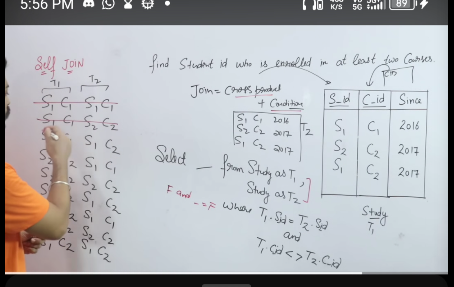 5:56 PM
K/S
5G
5G
89
Self JOIN
T1 T2
S1 C1 S1 C1
S1 C1 S2 C2
S1 C2
S1 C1
S2 C2
S1 C2
S1 C1
C2 S2 C2
S1 C2 S1 C2
find Student id who is enrolled in at least two Courses.
Join = Cross product
+ Condition
S1 C1 2016
S2 C2 2017
S1 C2 2017
T2
Select — from Study as T1,
Study as T2
F and - = F where T1.Sid = T2.Sid
and
T1.Cid <> T2.C_id
S_id C_id Since
S1 C1 2016
S2 C2 2017
S1 C2 2017
Study
T1